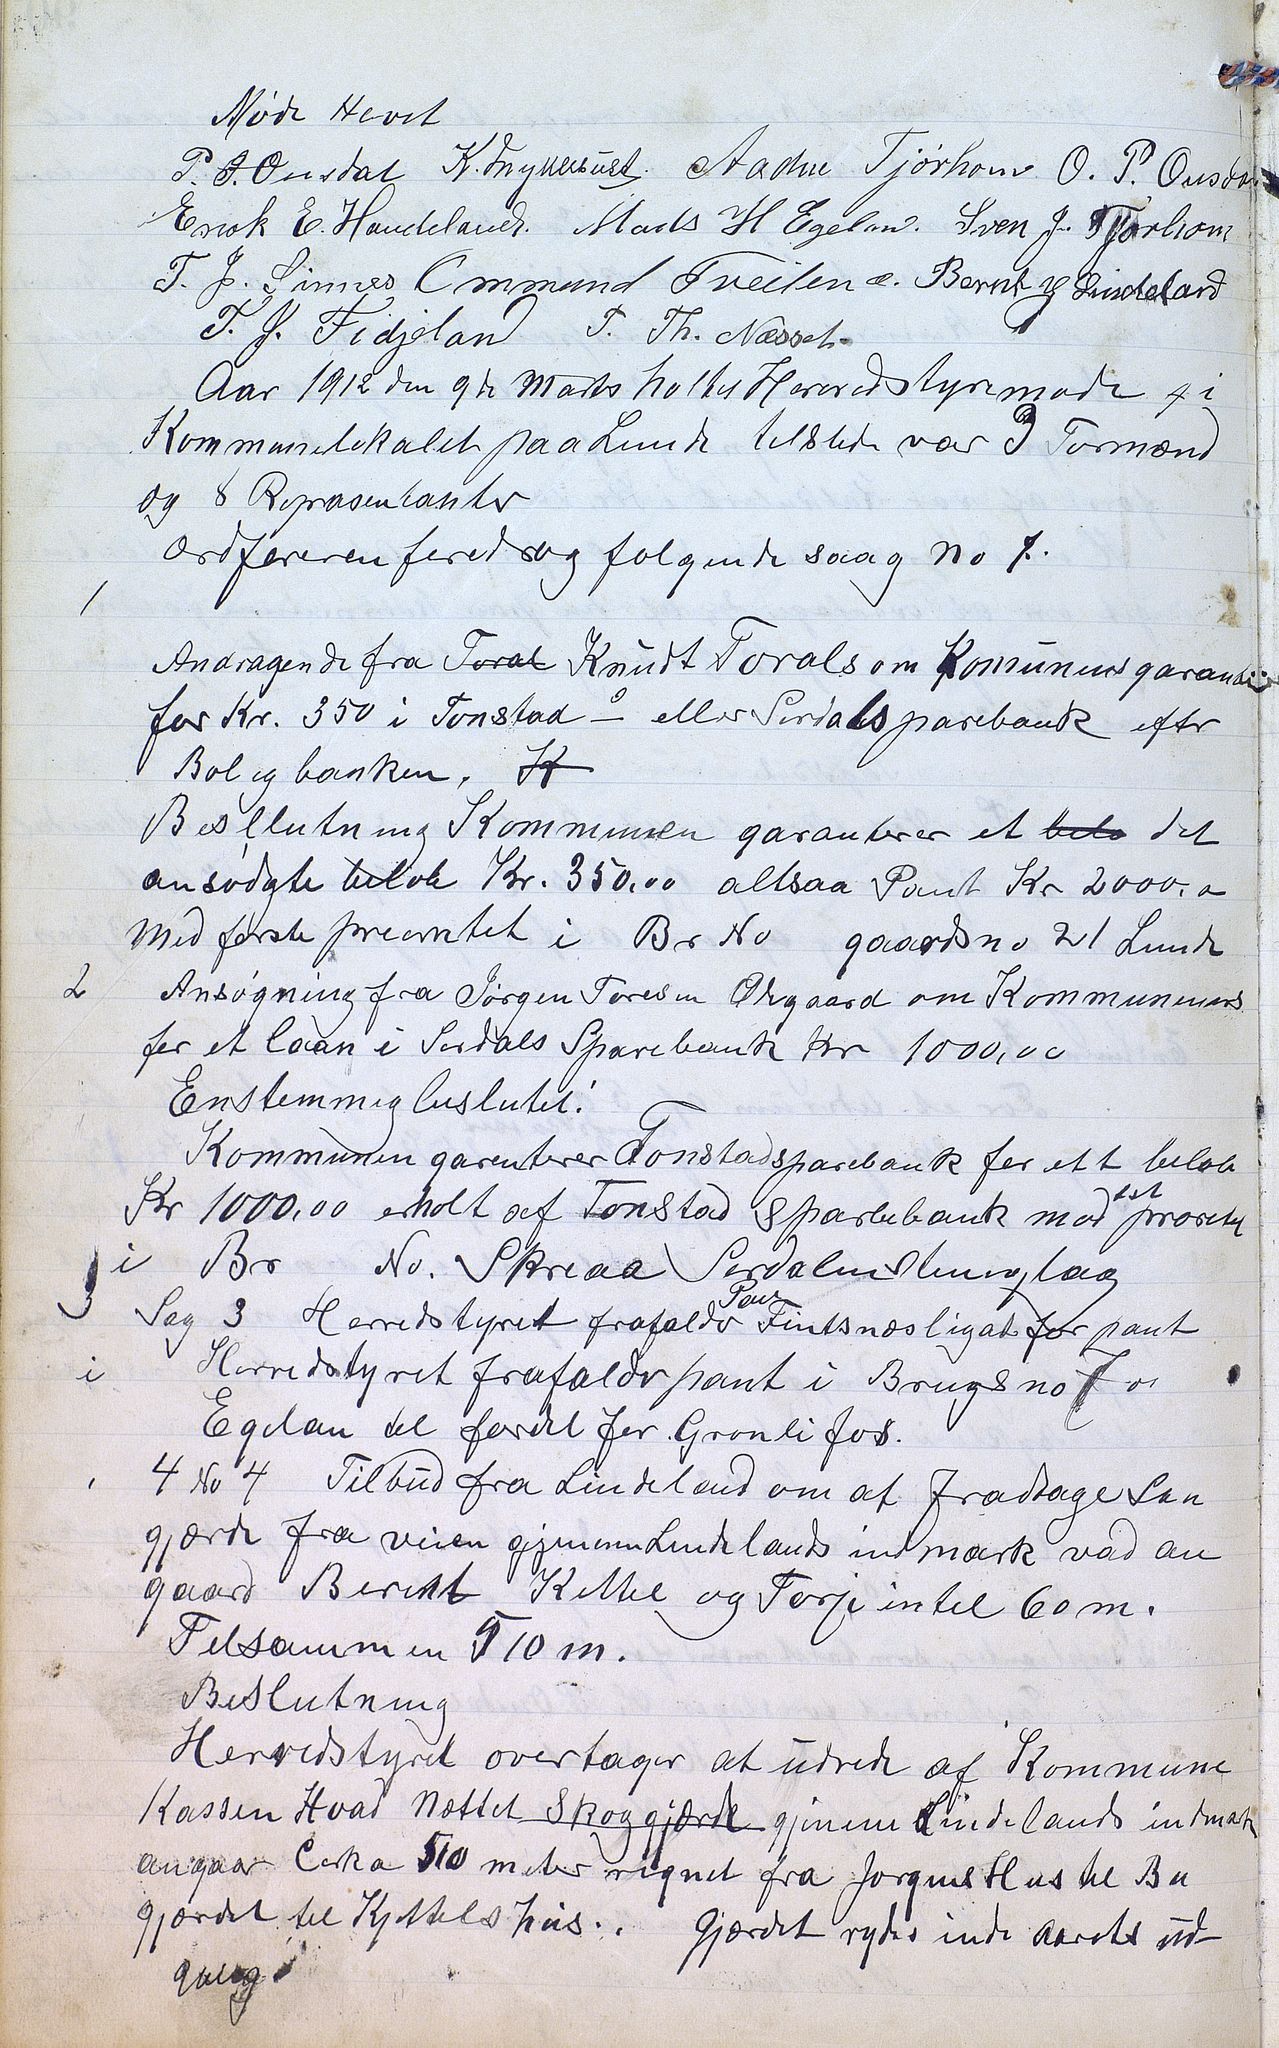 Møde Hevet
P. S. Ousdal K. Aadne Tjörhom O. P. Ousdal
Erick E. Handeland. Mads H Egelan. Sven J. Tjorhom
T. J. Sinnes Ommund Tveiten Bernt Lindeland
T. J. Fidjeland T. Th. Næsset
Aar 1912 den 9de Marts holtes Herredstyremøde i
Kommunelokalet paa Lunde telstede var 3 Formænd
og 8 Repræsentanter
Ordføreren foredrog følgende saag No 1.
1
Andragende fra Toral Knudt Torals om Komunens garanti
for Kr. 350 i Tonstad - eller Sirdals sparebank efter
Boligbanken. K
Besllutning Kommunen garanterer et belø det
ansødgte beløb Kr. 350,00 altsaa Pant Kr 2000,0
med første preoritet i Br No gaardsno 21 Lunde
2 Ansøgning fra Jörgen Toresen Øvgaard om Kommunenens
for et laan i Serdals Sparebank Kr 1000,00
Enstemmig beslutet:
Kommunen garenterer Tonstad sparebank for ett beløb
Kr 1000,00 erholt af Tonstad sparebank mod 1st proretet
i Br No. Skreaa Serdalens tinglag
3 Sag 3 Herredstyret frafaldr for pant
i Herredstyret frafaldr pant i Brugsno 7
Egelan tel fordel for Gronlifos.
4 No 4 Tilbud fra Lindeland om at fradtage
gjærde fra veien gjennem Lindelands indmark vad an
gaard Berent Kittel og Torje intel 60 m.
Telsammen 510 m.
Beslutning
Herredstyret overtager at udrede af Kommune
Kassen Hvad Nættet Skoggjærde gjenem Lindelands indmark
angaar Cerka 510 meter rignet fra Jorgens Hus tel Bu
gjærdet tel Kjettels hus.. Gjærdet rydes inde aarets ud-
gang